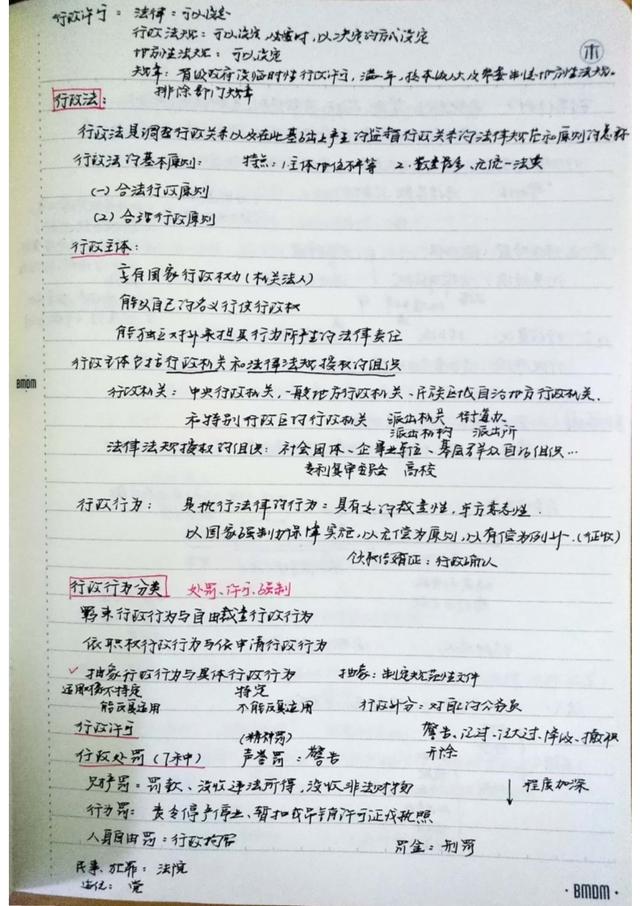 行政许可：法律：可以设定
行政法规：可以设定，必要时，以决定的方式设定
地方性法规：可以设定
规章：省级政府设临时性行政许可，满一年，提本级人大及常委制定地方性法规。
排除部门规章
木
行政法：
行政法是调整行政关系以及在此基础上产生的监督行政关系的法律规范和原则的总称
行政法的基本原则：特点：1.主体地位不平等 2.数量多，无统一法典
(一) 合法行政原则
(2) 合理行政原则
行政主体：
享有国家行政权力(机关法人)
能以自己的名义行使行政权
能独立对外承担其行为所产生的法律责任
行政主体包括行政机关和法律法规授权的组织
行政机关：中央行政机关，一般地方行政机关、民族区域自治地方行政机关、
和特别行政区的行政机关 派出机关 街道办
派出机构 派出所
法律法规授权的组织：社会团体、企事业单位、基层群众自治组织…
专利复审委员会 高校
BMDM
行政行为：是执行法律的行为：具有一定的裁量性，单方意志性.
以国家强制力保障实施，以无偿为原则，以有偿为例外.(征收)
结婚证：行政确认
行政行为分类 处罚、许可、强制
羁束行政行为与自由裁量行政行为
依职权行政行为与依申请行政行为
✓ 抽象行政行为与具体行政行为 抽象：制定规范性文件
适用对象不特定 特定
能反复适用 不能反复适用 行政处分：对自己的公务员
行政许可 警告、记过、记大过、降级、撤职
开除
行政处罚(7种) (精神罚) 声誉罚：警告
财产罚：罚款、没收违法所得，没收非法财物
↓ 程度加深
行为罚：责令停产停业、暂扣或吊销许可证或执照
人身自由罚：行政拘留 罚金：刑罚
民事、犯罪：法院
违纪：党
BMDM